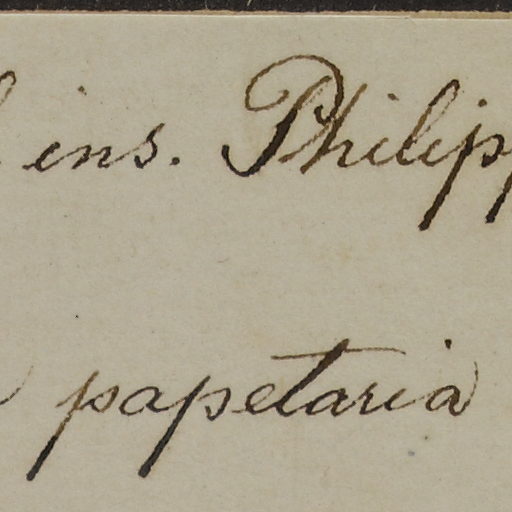 ins. Philipp
papetaria